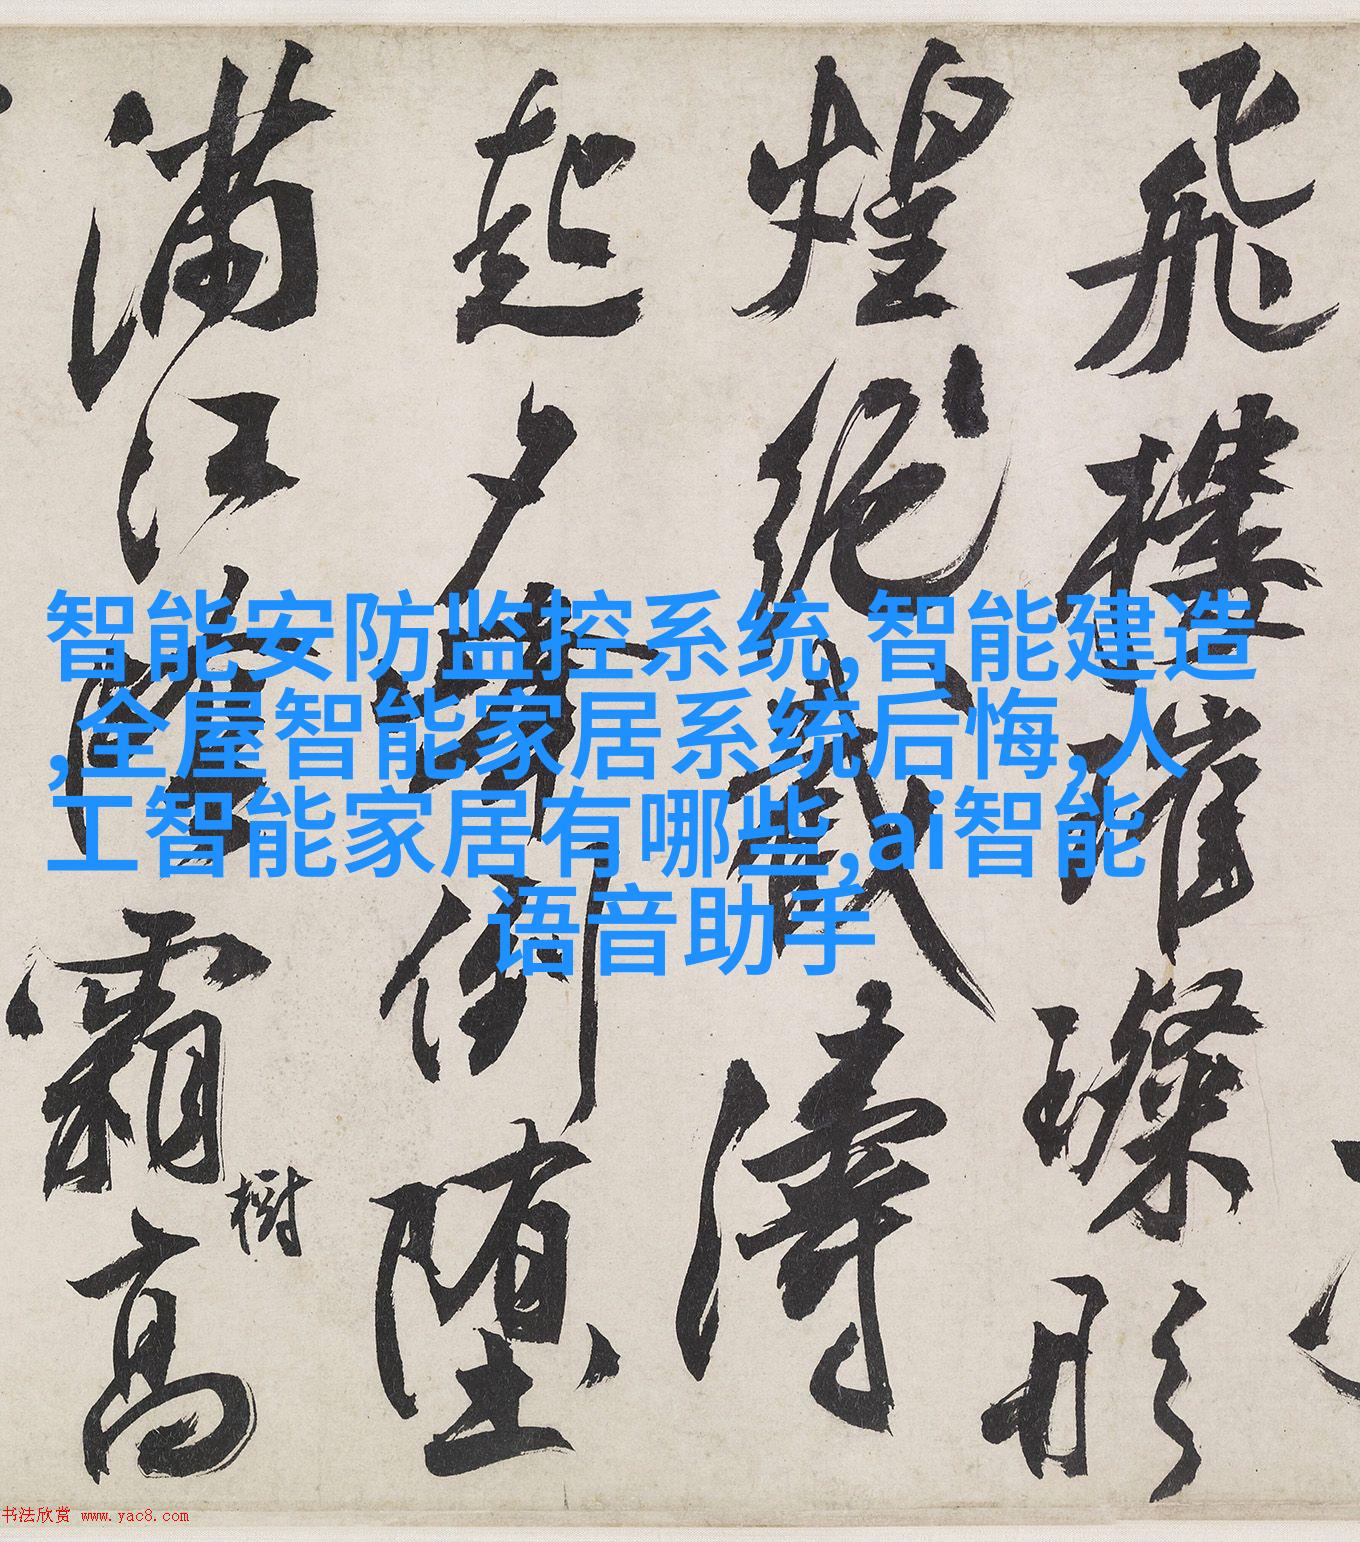 智能安防监控系统,智能建造
,全屋智能家居系统后悔,人
工智能家居有哪些,ai智能
语音助手
飛樓璀璨形
煌濤
起夕倒墮
滿江霜高
樹
书法欣赏 www.yac8.com